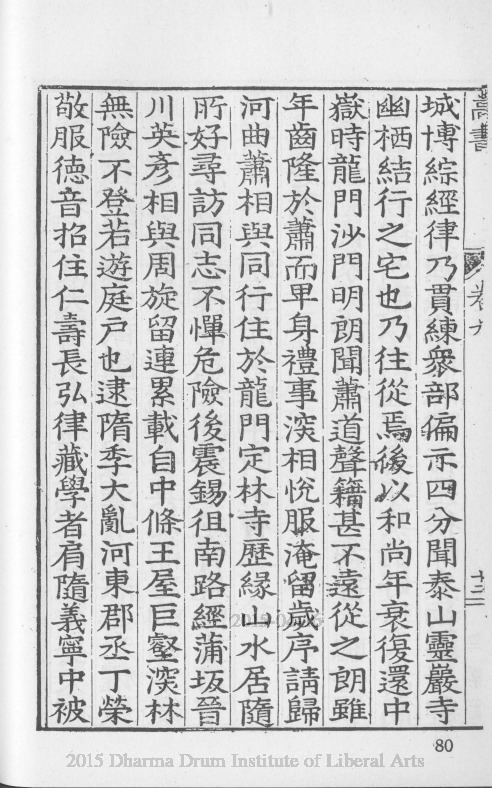 城博綜經律乃貫練衆部偏示四分聞泰山靈巖寺
幽栖結行之宅也乃往從焉後以和尚年衰復還中
嶽時龍門沙門明朗聞蕭道聲籍甚不遠從之朗雖
年齒隆於蕭而卑身禮事深相悅服淹留歲序請歸
河曲蕭相與同行住於龍門定林寺歷緣山水居隨
所好尋訪同志不憚危險後震錫徂南路經蒲坂晉
川英彥相與周旋留連累載自中條王屋巨壑深林
無險不登若遊庭戶也逮隋季大亂河東郡丞丁榮
敬服德音招住仁壽長弘律藏學者肩隨義寧中被
卷九
十二
80
2015 Dharma Drum Institute of Liberal Arts